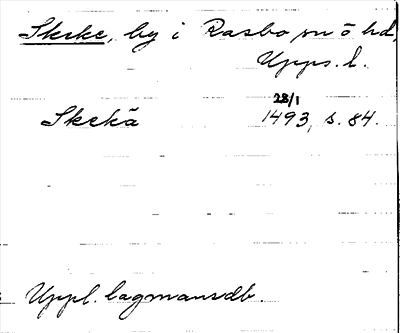 Skeke, by i Rasbo sn o hd,
Upps. l.
28/1
Skekä 1493, s. 84.
Uppl. lagmansdb.